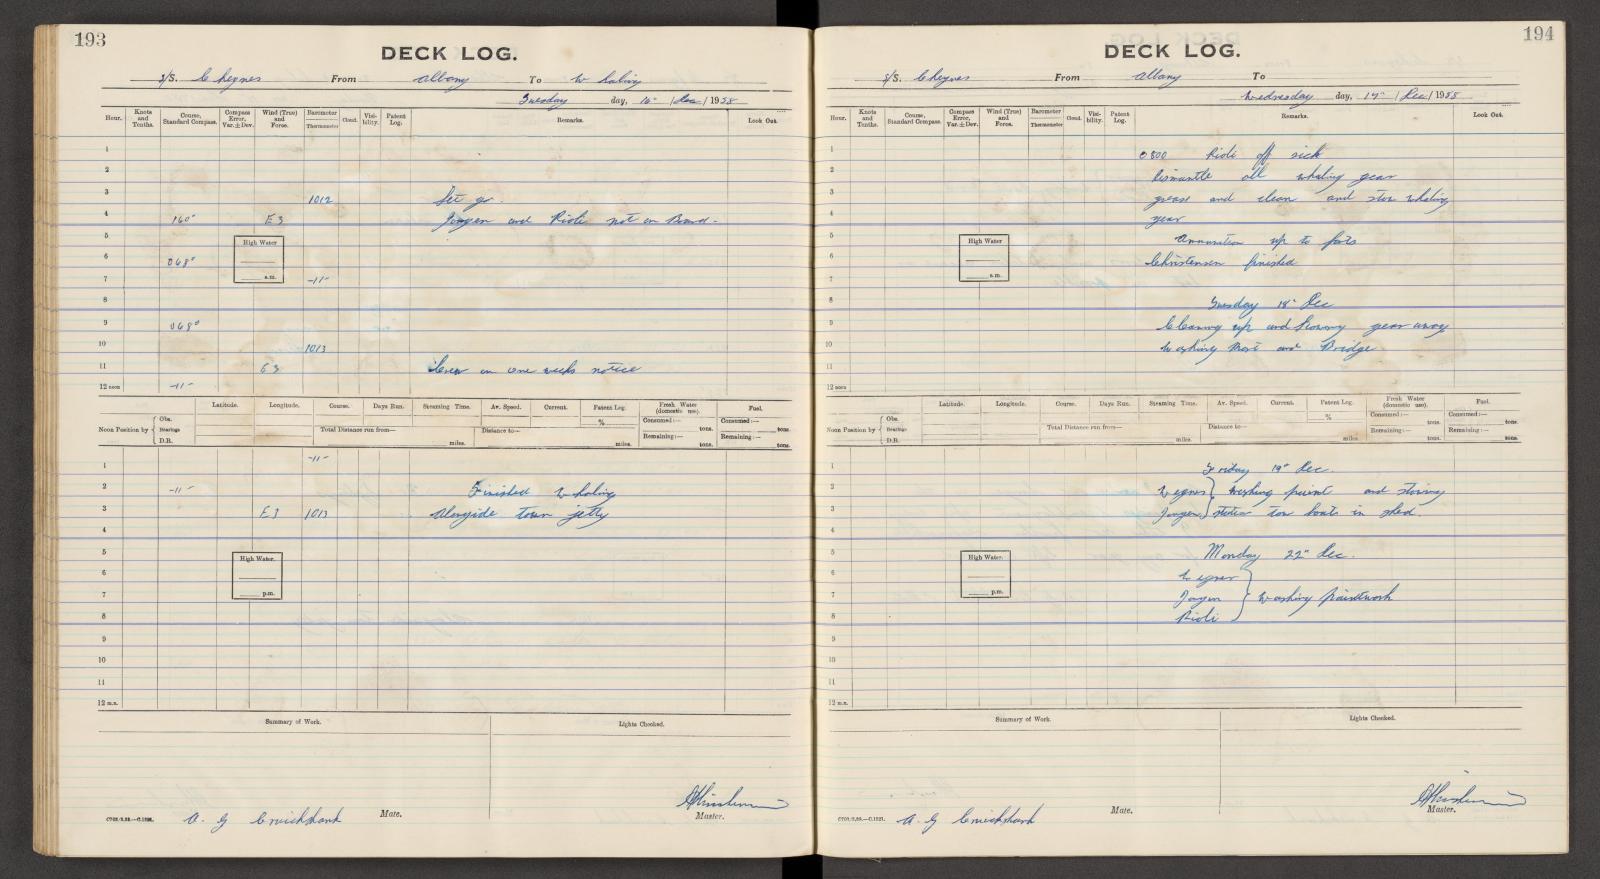 193
DECK LOG.
S/S. Cheynes From Albany To Whaling
Tuesday day, 16" / Dec / 1958
Hour. Knots and Tenths. Course, Standard Compass. Compass Error, Var. ± Dev. Wind (True) and Force. Barometer Thermometer Cloud. Visi-bility. Patent Log. Remarks. Look Out.
1
2
3 1012 Let go.
4 160° E 3 Jorgen and Rioli not on Board.
5
High Water
6 068°
a.m.
7 -11-
8
9 068°
10 1013
11 E 3 Crew on one weeks notice
12 noon -11-
Latitude. Longitude. Course. Days Run. Steaming Time. Av. Speed. Current. Patent Log. Fresh Water (domestic use). Fuel.
Noon Position by { Obs. Bearings D.R.
Total Distance run from— miles. Distance to— miles. %
Consumed:— tons. Consumed:— tons.
Remaining:— tons. Remaining:— tons.
1 -11-
2 -11- Finished Whaling
3 E 3 1013 Alongside town jetty
4
5
High Water.
6
7 p.m.
8
9
10
11
12 m.n.
Summary of Work. Lights Checked.
C7021/2.53.—C.1021. A. G Cruickshank Mate. Master.
194
DECK LOG.
S/S. Cheynes From Albany To
Wednesday day, 17" / Dec / 1958
Hour. Knots and Tenths. Course, Standard Compass. Compass Error, Var. ± Dev. Wind (True) and Force. Barometer Thermometer Cloud. Visi-bility. Patent Log. Remarks. Look Out.
1 0800 Rioli off sick
2 Dismantle all whaling gear
3 grease and clean and stow whaling
4 gear
5 Ammunition up to forts
High Water
6 Christensen finished
a.m.
7
8 Tuesday 18" Dec
9 Cleaning up and stowing gear away
10 Washing Mast and Bridge
11
12 noon
Latitude. Longitude. Course. Days Run. Steaming Time. Av. Speed. Current. Patent Log. Fresh Water (domestic use). Fuel.
Noon Position by { Obs. Bearings D.R.
Total Distance run from— miles. Distance to— miles. %
Consumed:— tons. Consumed:— tons.
Remaining:— tons. Remaining:— tons.
1 Friday 19" Dec.
2 Wegner } Washing paint and stowing
3 Jorgen } tow boats in shed.
4
5 Monday 22" Dec.
High Water.
6 Wegner
7 p.m. Jorgen } Washing paintwork
8 Rioli
9
10
11
12 m.n.
Summary of Work. Lights Checked.
C7021/2.53.—C.1021. A. G Cruickshank Mate. Master.